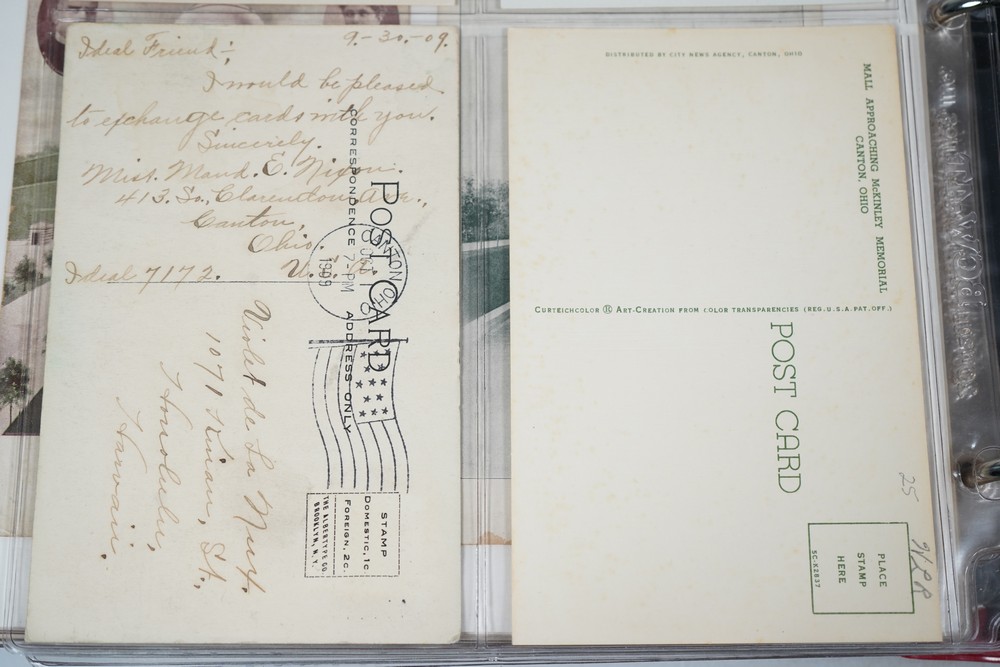 9.-30.-09.
Ideal Friend:-
I would be pleased
to exchange cards with you.
Sincerely.
Mist. Maud. E. Nixon.
413. So., Clarendon Ave.,
Canton,
Ohio.
U.S.A.
Ideal 7172.
POST CARD
CORRESPONDENCE
ADDRESS ONLY
CANTON, OHIO
7-PM
1909
Violet de La Nux.
1071 Kinau, St.,
Honolulu,
Harwaii.
STAMP
DOMESTIC, 1C.
FOREIGN, 2C.
THE ALBERTYPE CO.
BROOKLYN, N.Y.
DISTRIBUTED BY CITY NEWS AGENCY, CANTON, OHIO
MALL APPROACHING McKINLEY MEMORIAL
CANTON, OHIO
CURTEICHCOLOR ® ART-CREATION FROM COLOR TRANSPARENCIES (REG.U.S.A.PAT.OFF.)
POST CARD
25
PLACE
STAMP
HERE
SC-K2837